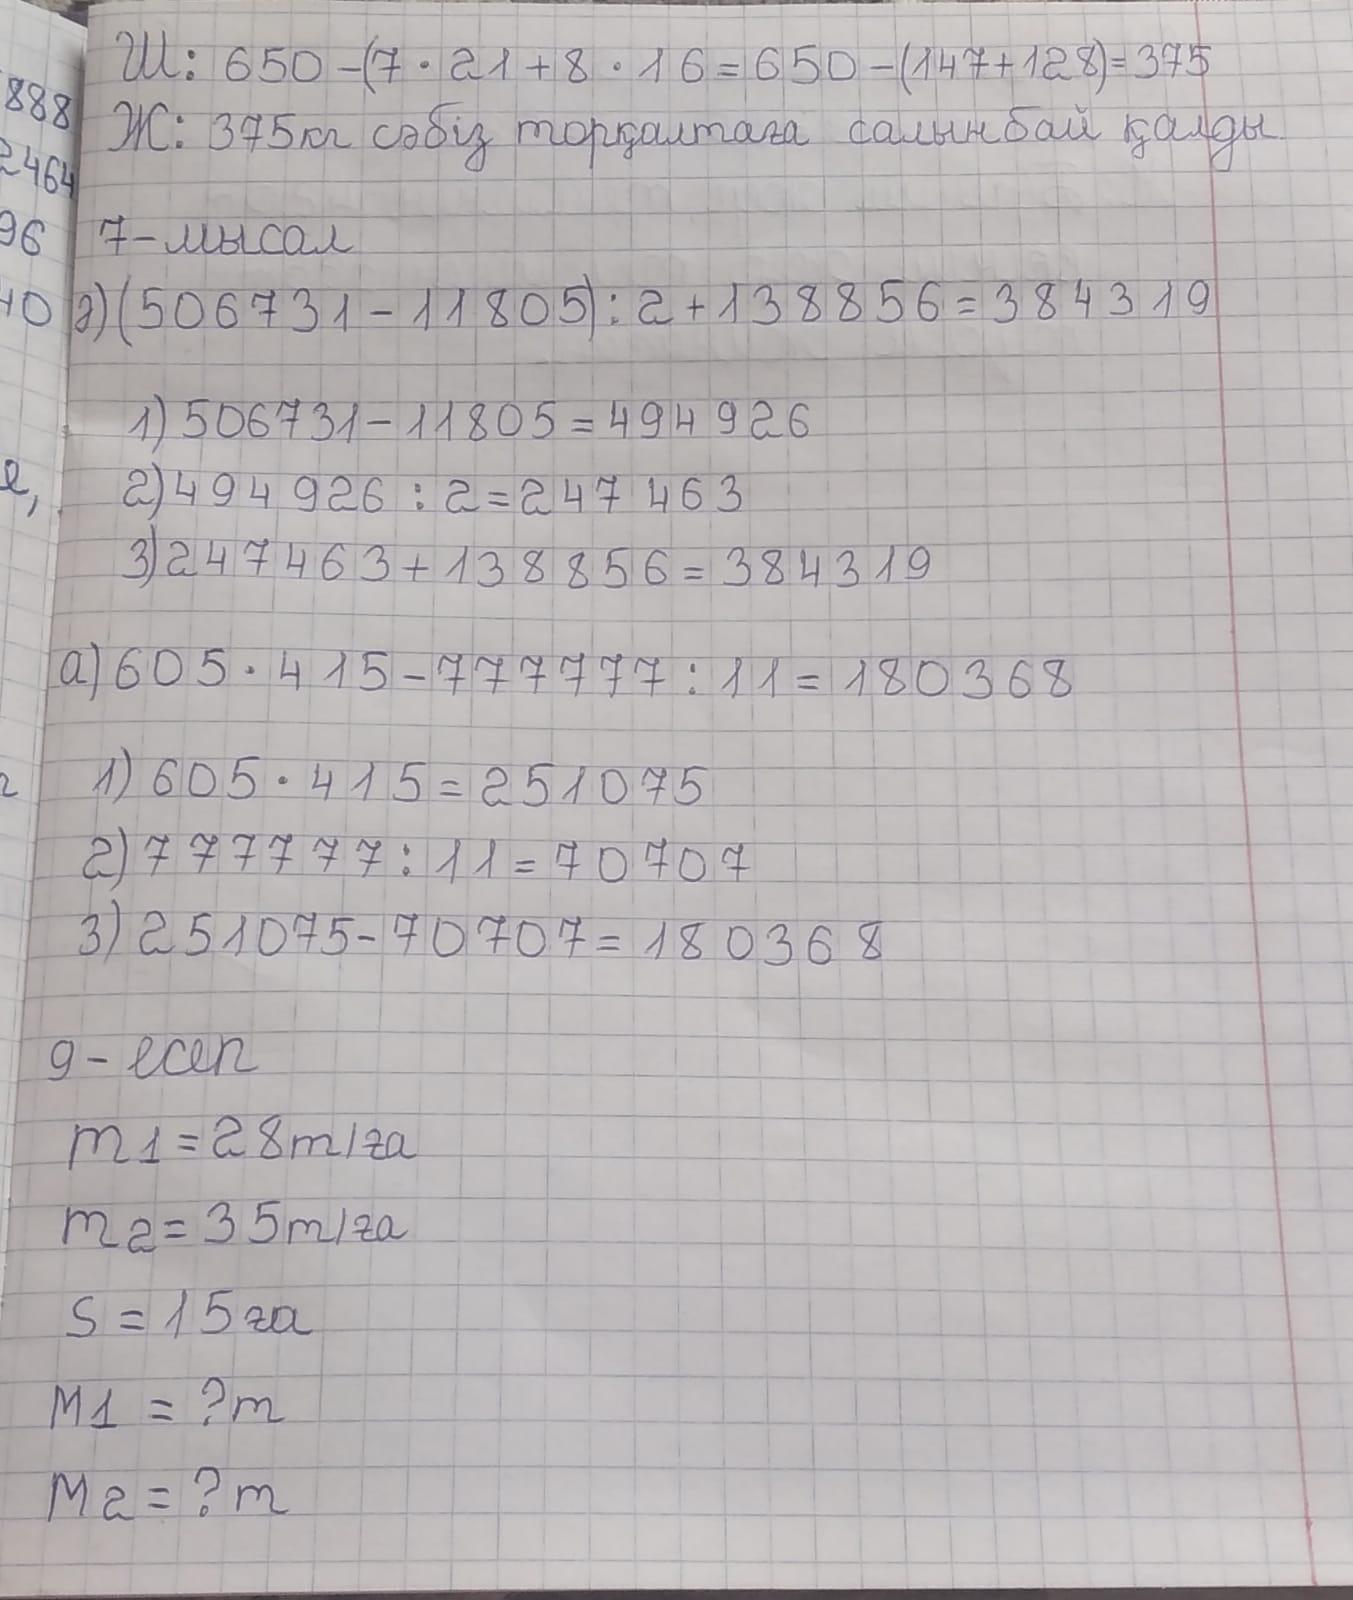 Ш: 650-(7·21+8·16=650-(147+128)=375
Ж: 375кг сәбіз торқалтаға салынбай қалды
888
2464
96
7-мысал
10
ә)(506731-11805):2+138856=384319
1)506731-11805=494926
2)494926:2=247463
3)247463+138856=384319
а)605·415-777777:11=180368
1)605·415=251075
2)777777:11=70707
3)251075-70707=180368
9-есеп
m1=28т/га
m2=35т/га
S=15га
M1=?т
M2=?т